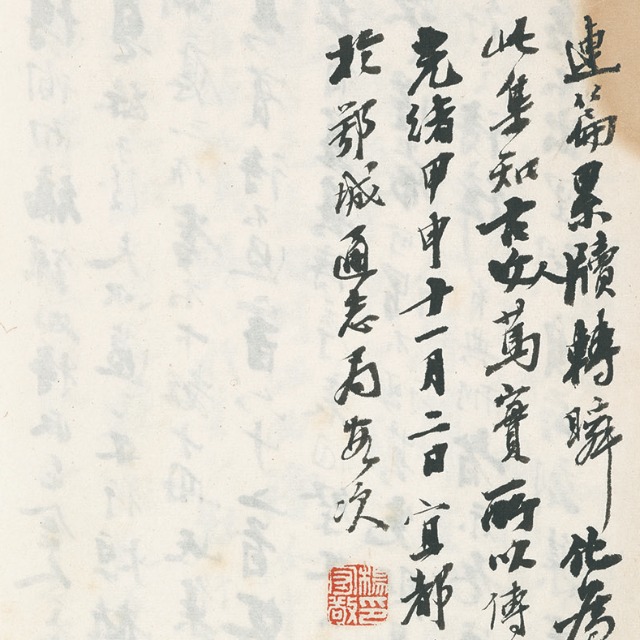 連篇累牘轉瞬化為
此集知古人篤實所以傳
光緒甲申十一月二日宜都
於鄂城通志局次
楊印
守敬